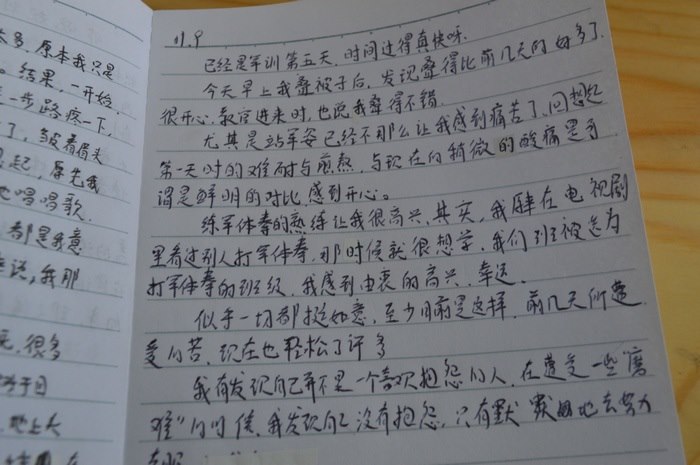 太多.原本我只是
。结果,一开始.
一步路疼一下,
了,皱着眉头
起,原先我
唱唱歌.
都是我意
说,我那
很多
地上
11.9
已经是军训第五天.时间过得真快呀.
今天早上我叠被子后,发现叠得比前几天的好多了.
很开心.教官进来时,也说我叠得不错.
尤其是站军姿已经不那么让我感到痛苦了,回想起
第一天时的难耐与煎熬,与现在的稍微的酸痛是可
谓是鲜明的对比,感到开心。
练军体拳的熟练让我很高兴,其实,我早在电视剧
里看过别人打军体拳,那时候就很想学.我们班被选为
打军体拳的班级.我感到由衷的高兴、幸运.
似乎一切都挺如意,至少目前是这样.前几天所遭
受的苦,现在也轻松了许多
我有发现自己并不是一个喜欢抱怨的人.在遭受一些"磨
难"的时候,我发现自己没有抱怨,只有默默的地去努力